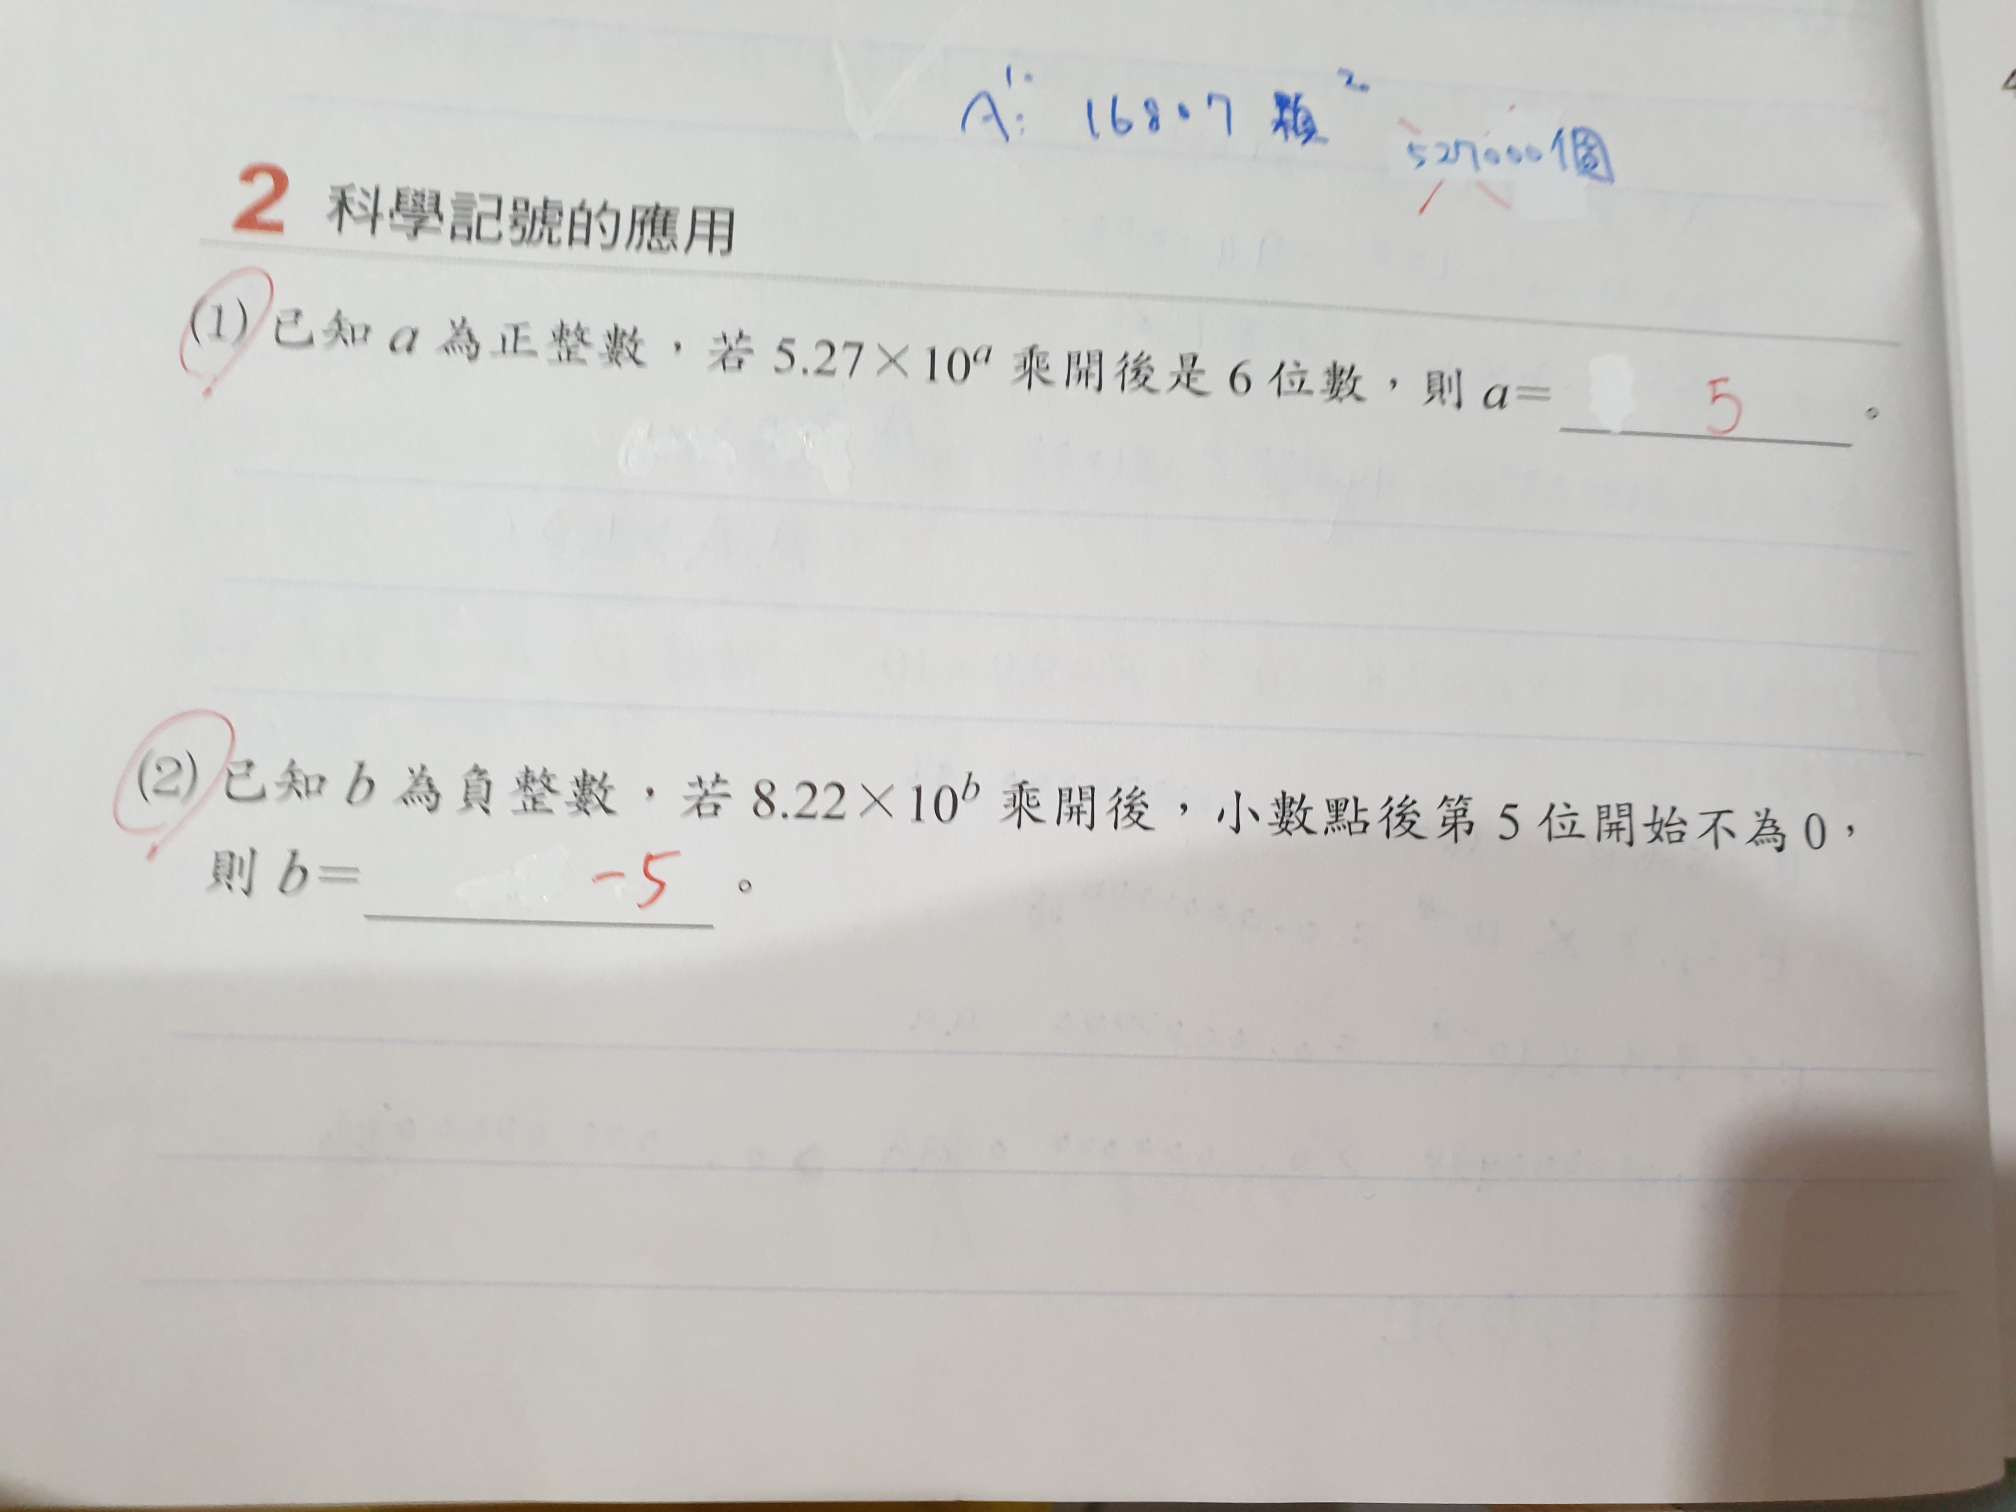 A: 1. 168.7 顆 2. 527000個
2 科學記號的應用
(1) 已知 a 為正整數，若 5.27×10ᵃ 乘開後是 6 位數，則 a= 5 。
(2) 已知 b 為負整數，若 8.22×10ᵇ 乘開後，小數點後第 5 位開始不為 0，
則 b= -5 。